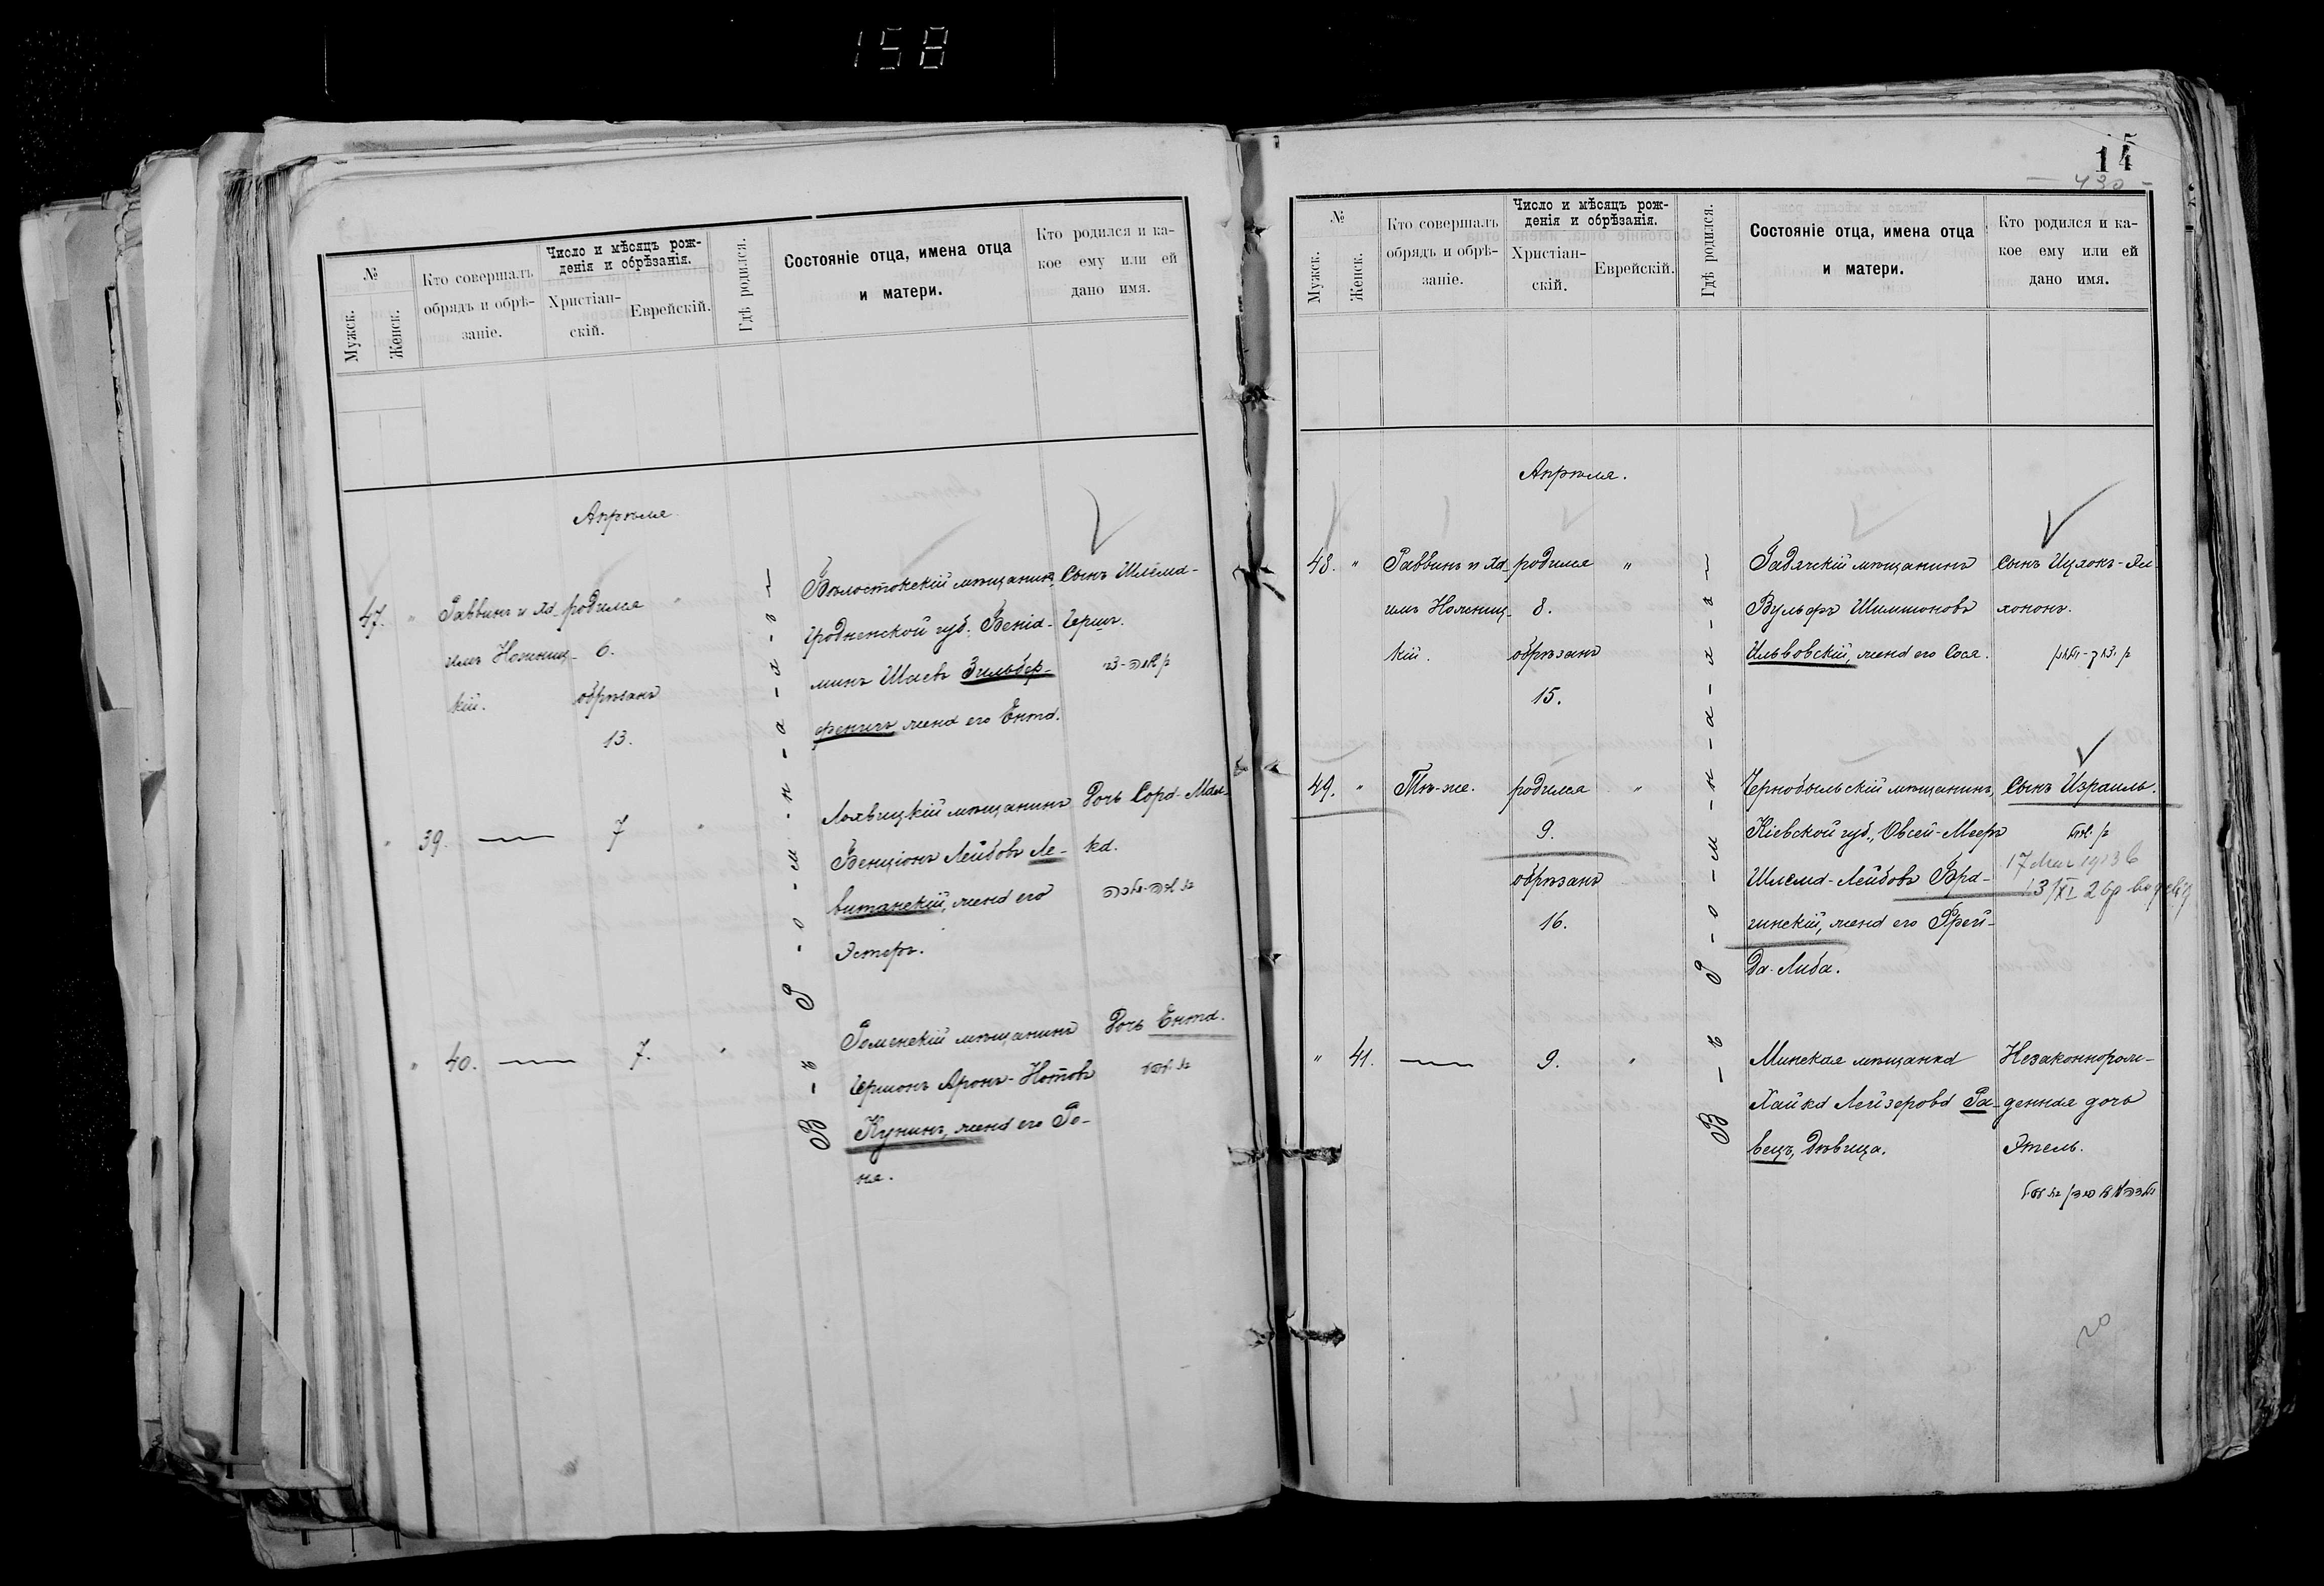 158
№
Мужск.
Женск.
Кто совершалъ
обрядъ и обрѣ-
заніе.
Число и мѣсяцъ рож-
денія и обрѣзанія.
Христіан-
скій.
Еврейскій.
Гдѣ родился.
Состояніе отца, имена отца
и матери.
Кто родился и ка-
кое ему или ей
дано имя.
Апрѣля
47. "
Раввинъ и Ха-
имъ Ножниц-
кій.
родился
6.
обрѣзанъ
13.
"
В-ъ Р-о-м-н-а-х-ъ
Бѣлостокскій мѣщанинъ
Гродненской губ. Беніа-
минъ Шаевъ Зильбер-
фенигъ, жена его Ента.
Сынъ Шлема-
Гершъ.
" 39. — 7 "
Лохвицкій мѣщанинъ
Бенціонъ Лейбовъ Ле-
витанскій, жена его
Эстеръ.
Дочь Сора-Мал-
ка.
" 40. — 7. "
Роменскій мѣщанинъ
Гершонъ Аронъ-Нотовъ
Кунинъ, жена его Ро-
ня.
Дочь Ента.
14
- 430 -
№
Мужск.
Женск.
Кто совершалъ
обрядъ и обрѣ-
заніе.
Число и мѣсяцъ рож-
денія и обрѣзанія.
Христіан-
скій.
Еврейскій.
Гдѣ родился.
Состояніе отца, имена отца
и матери.
Кто родился и ка-
кое ему или ей
дано имя.
Апрѣля.
48. "
Раввинъ и Ха-
имъ Ножниц-
кій.
родился
8.
обрѣзанъ
15.
"
В-ъ Р-о-м-н-а-х-ъ
Гадячскій мѣщанинъ
Вульфъ Шимшоновъ
Ильвовскій, жена его Сося.
Сынъ Ицхокъ-Эл-
хононъ.
49. "
Тѣ-же.
родился
9.
обрѣзанъ
16.
"
Чернобыльскій мѣщанинъ,
Кіевской губ., Овсей-Мееръ
Шлема-Лейбовъ Бра-
гинскій, жена его Фрей-
да-Либа.
Сынъ Израиль.
17 Мая 1913
" 41. — 9. "
Минская мѣщанка
Хайка Лейзерова Ра-
вецъ, дѣвица.
Незаконнорож-
денная дочь
Этель.
20